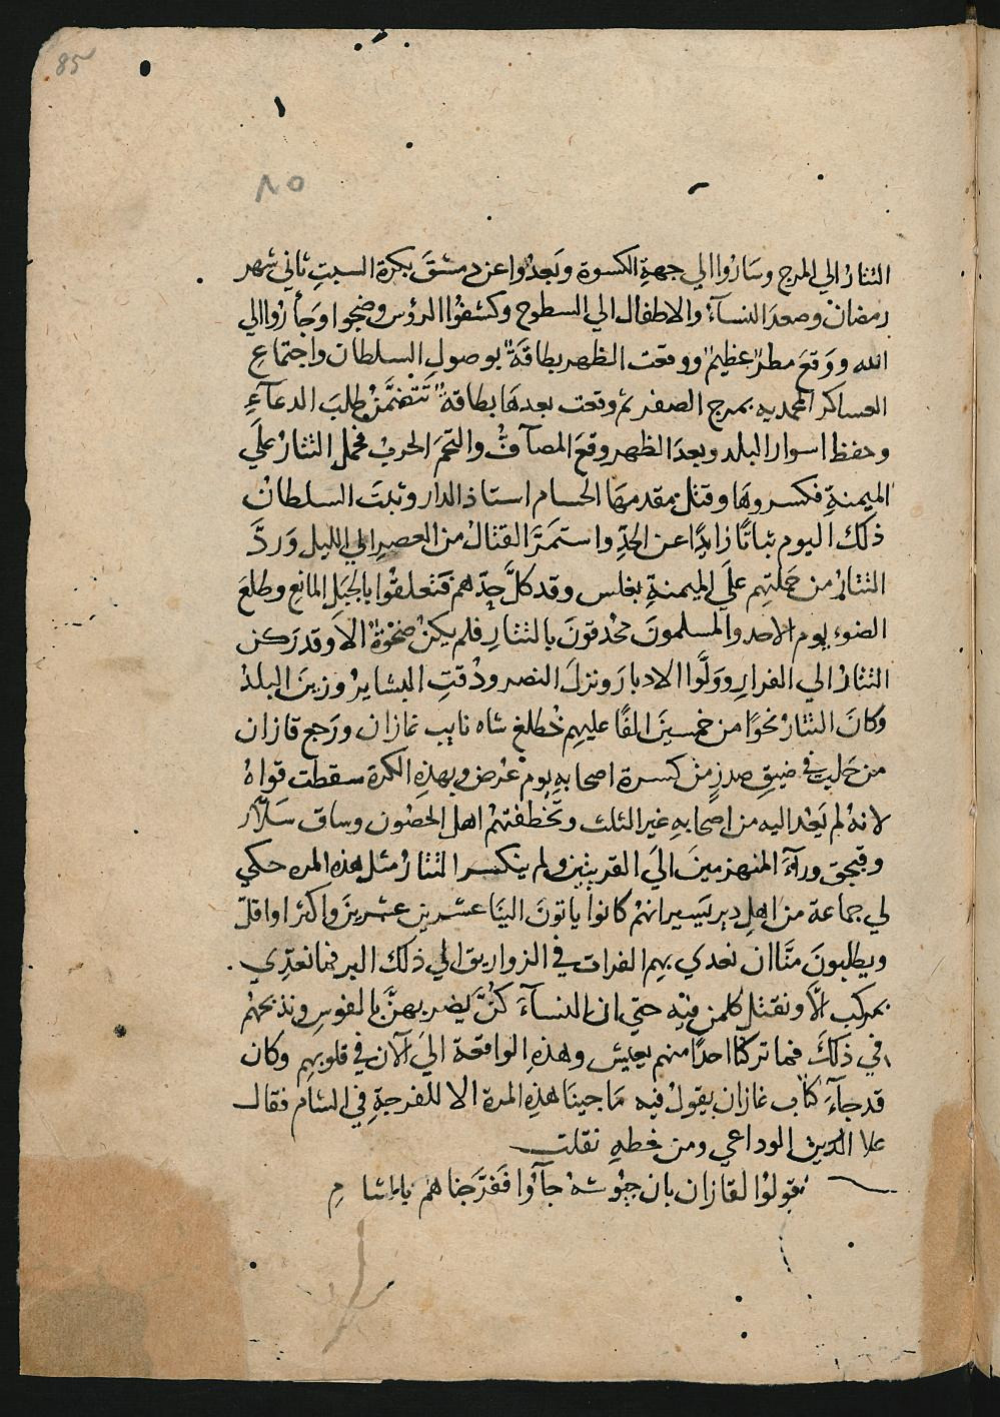 85
٨٥
التتارُ الي المرج وسَارُوا الي جهةِ الكسوة وبَعدُوا عن دمشقَ بكرة السبتِ ثاني شهر
رمضان وصعدَ النسآءُ والاطفال الي السطوح وكشفُوا الرؤس وضجوا وَجأرُوا الي
الله ووَقعَ مطرٌ عظيمٌ ووقعت الظهر بطاقةٌ بوصول السلطان واجتماعِ
العساكر المحمديه بمرج الصفر ثم وقعت بعدهَا بطاقةٌ تتضمَّنُ طلبَ الدعآءِ
وحفظ اسوار البلد وبعدَ الظهر وقعَ المصآفُّ والتحمَ الحربُ فحمل التتارُ علَي
الميمنةِ فكسروهَا وقتل مقدمهَا الحسام استاذ الدار وثبتَ السلطانُ
ذلك اليوم ثباتًا زايدًا عن الحدِّ واستمَرَّ القتالُ من العصرِ الي الليل وَردَّ
التتارُ من حَملتِهم علَي الميمنةِ بغلس وقد كلَّ حِدّهم فتعلقُوا بالجَبلِ المانع وطلعَ
الضوء يوم الاحد والمسلمونَ محْدقونَ بالتتارِ فلم يكنْ ضحْوةٌ الاَ وقد رَكنَ
التتارُ الي الفرارِ ووَلَّوا الادبارَ ونزلَ النصر ودُقتِ البشايرُ وزينَ البلدُ
وكانَ التتارُ نحوًا من خمسينَ الفًا عليهم خُطلغ شاه نايب غازان ورَجع قازان
من حَلب في ضيقِ صدرٍ من كسرة اصحابهِ يوم عُرض وبهذِه الكسرة سقطت قواهُ
لانهُ لم يَعُد اليه من اصحابهِ غير الثلث وتخطفتهمْ اهل الحصُون وساق سَلاّر
وقبجق ورآءَ المنهزمينَ الَي القريتين ولم ينكسر التتارُ مثل هذه المره حكي
لي جماعة من اهلِ دير يَسير انهمْ كانوا ياتونَ الينَا عشرين عشرينَ واكثر او اقلّ
ويطلبونَ منَّا ان نعدي بهِم الفرات في الزواريق الي ذلك البر فما نعدِّي
بمركب الاَّ ونقتل كلمن فيْهِ حتي ان النسآءَ كنَّ يضربهنَّ بالفوسِ ونذبحهُم
في ذلكَ فما تركنا احدًا منهم يعيش وهذهِ الواقعة الَي الآن في قلوبهِم وكان
قد جآءَ كتاب غازان يقولُ فيه مَا جينا هذِه المرة الا للفرجةِ في الشام فقال
علا الدين الوداعي ومن خطهِ نقلت
قولوُا لقازان بان جيُوشهُ جآؤا ففَرَّجناهم بالشامِ